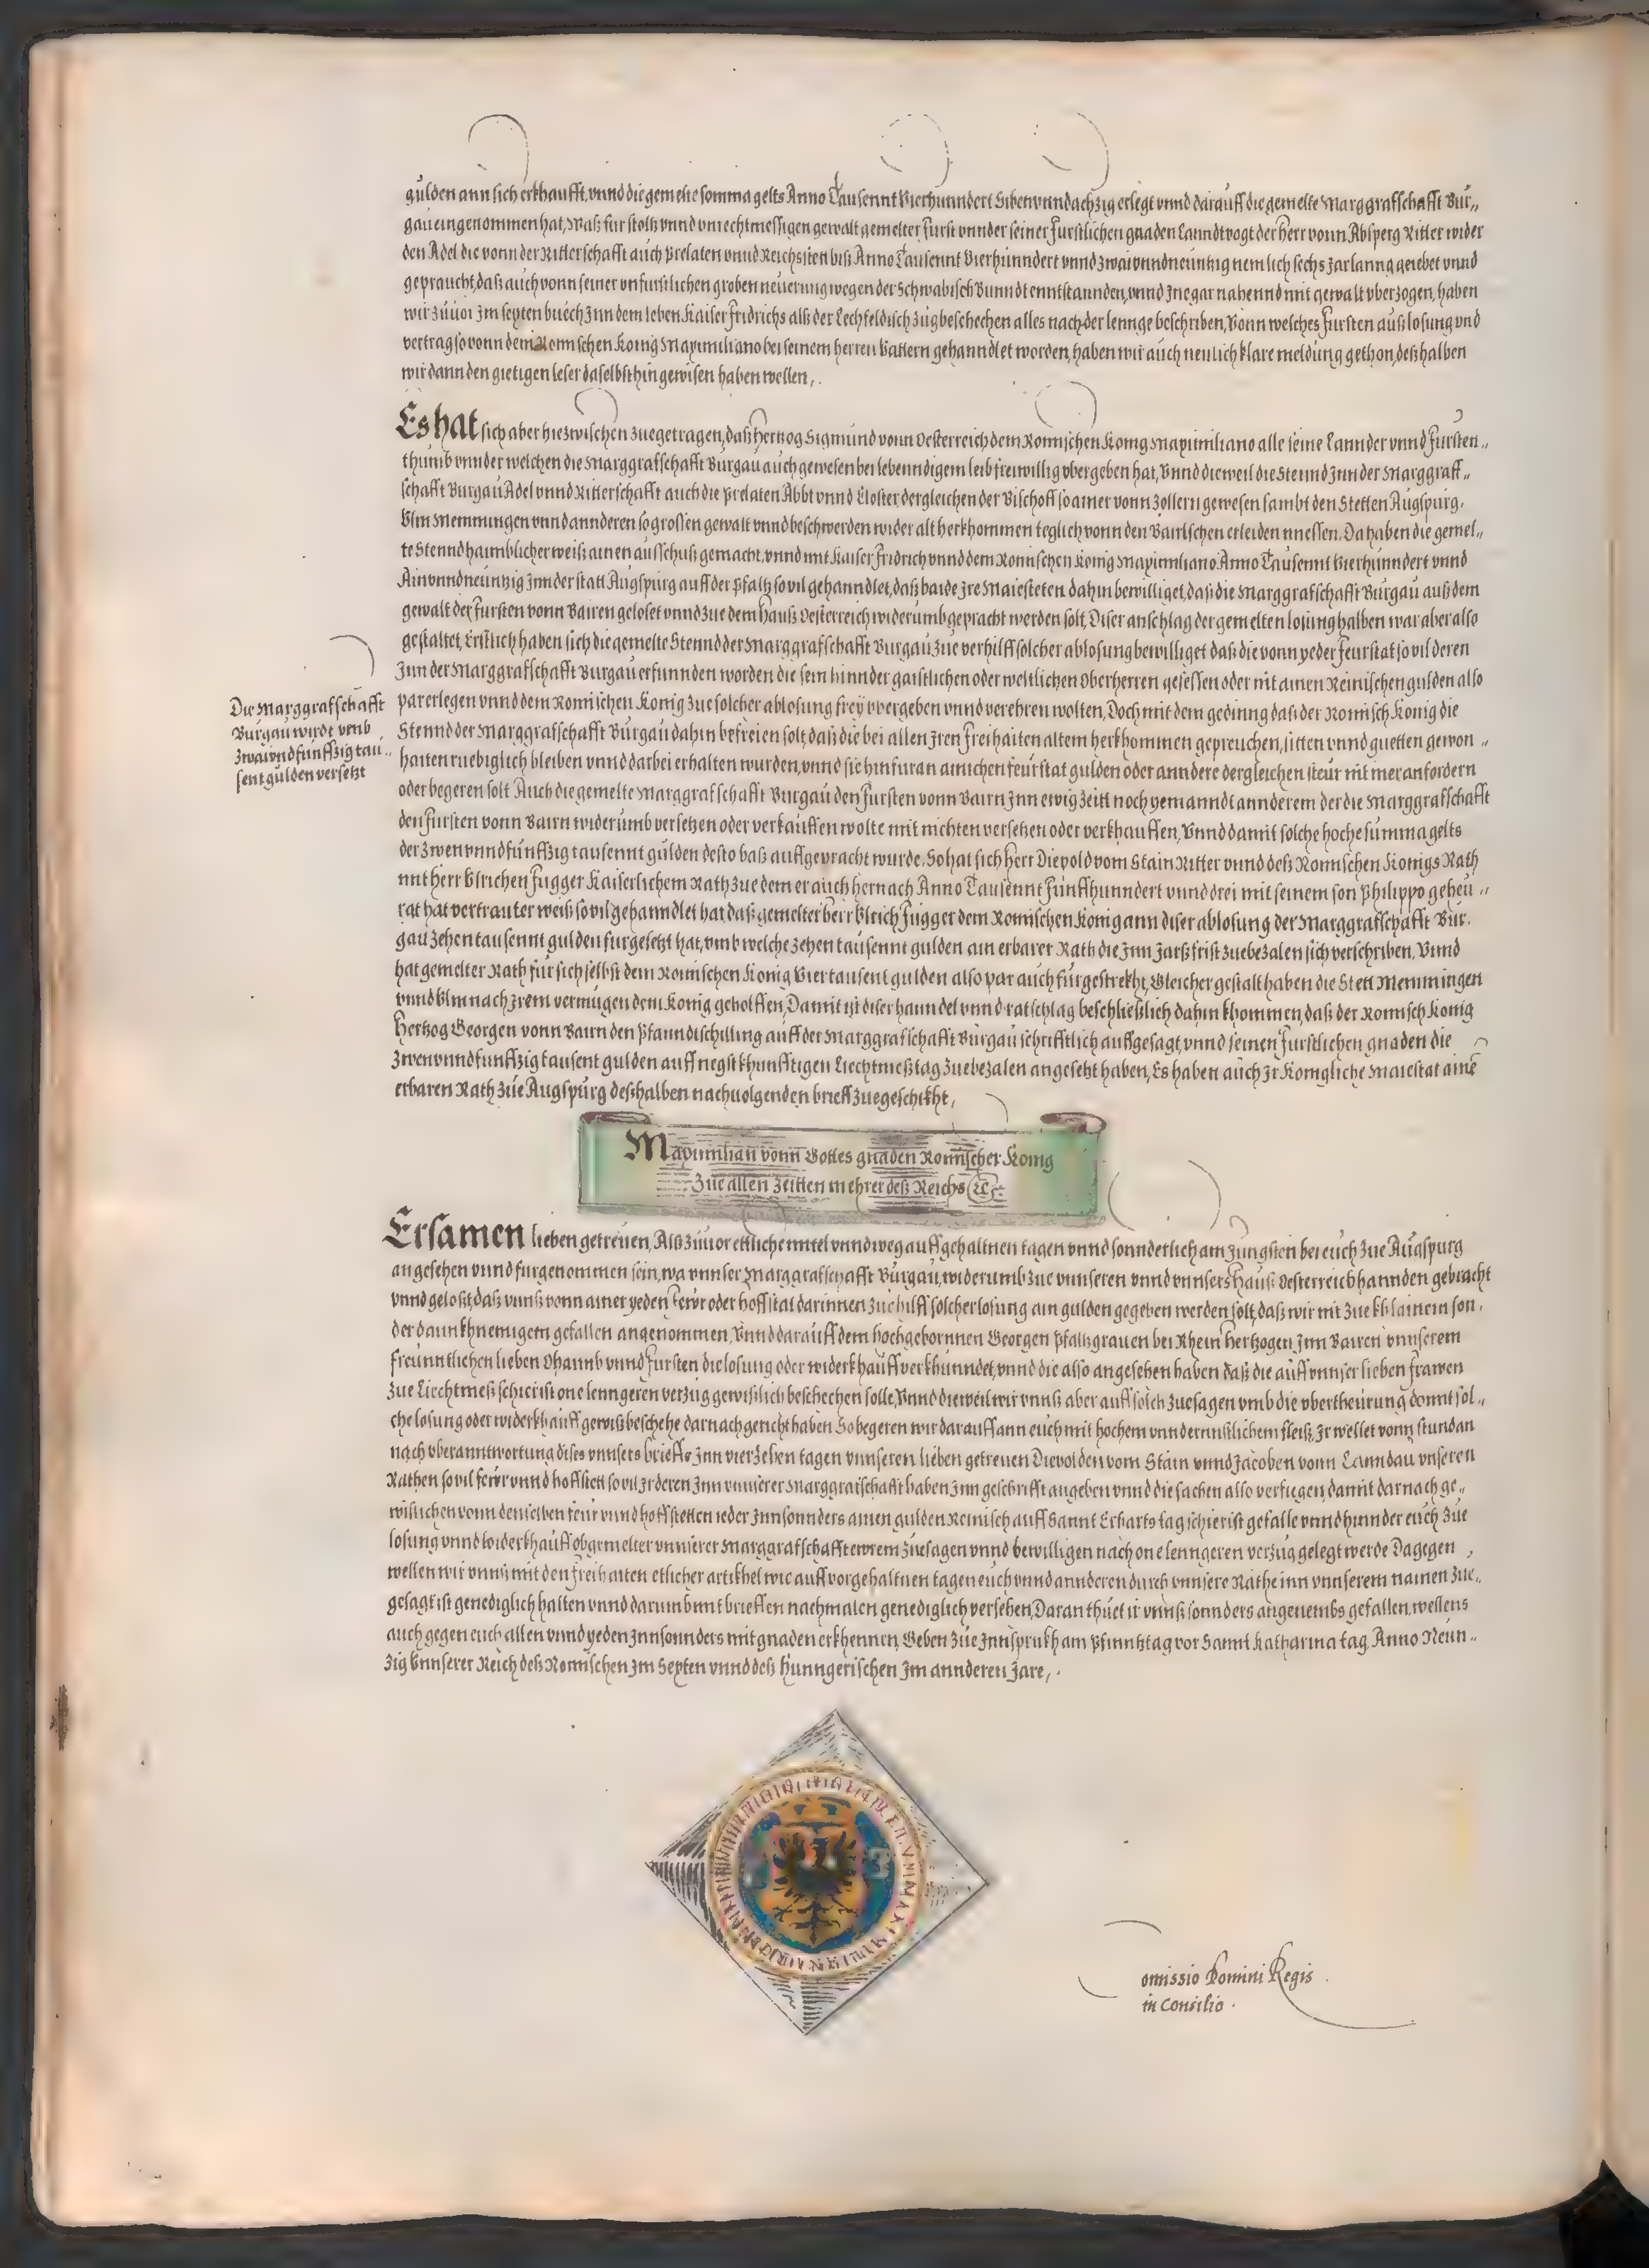 gulden ann sich erkhaufft, vnnd die gemelte somma gelts Anno Tausennt Vierhunndert Sibenvnndachzig erlegt vnnd darauff die gemelte Marggrafschafft Bur„
gau eingenommen hat, Waß für stoltz vnnd vnrechtmessigen gewalt gemelter Furst vnnder seiner Furstlichen gnaden Lanndtvogt der Herr vonn Absperg Ritter wider
den Adel die vonn der Ritterschafft auch Prelaten vnnd Reichsstett biß Anno Tausennt Vierhunndert vnnd zwaivnndneuntzig nemlich sechs Jar lanng geiebet vnnd
gepraucht, daß auch vonn seiner vnfurstlichen groben neuerung wegen der Schwabisch Bunndt enntstannden, vnnd Jne gar nahennd mit gewalt vberzogen, haben
wir zuuor Jm septen buech Jnn dem leben Kaiser Fridrichs alß der Lechfeldisch zug beschechen alles nach der lennge beschriben, Vonn welches Fursten außlosung vnd
vertrag so vonn dem Romischen Konig Maximiliano bei seinem herren Vattern gehanndlet worden, haben wir auch neulich klare meldung gethon, deßhalben
wir dann den gietigen leser daselbsthin gewisen haben wellen,.
Es hat sich aber hiezwischen zuegetragen, daß Hertzog Sigmund vonn Oesterreich dem Romischen Konig Maximiliano alle seine Lannder vnnd Fursten„
thumb vnnder welchen die Marggrafschafft Burgau auch gewesen bei lebenndigem leib freiwillig vbergeben hat, Vnnd dieweil die Stennd Jnn der Marggraff„
schafft Burgau Adel vnnd Ritterschafft auch die Prelaten Abbt vnnd Closter dergleichen der Bischoff so ainer vonn Zollern gewesen sambt den Stetten Augspurg,
Vlm Memmingen vnnd annderen so grossen gewalt vnnd beschwerden wider alt herkhommen teglich vonn den Bairischen erleiden miessen, Da haben die gemel„
te Stennd haimblicher weiß ainen ausschuß gemacht, vnnd mit Kaiser Fridrich vnnd dem Romischen Konig Maximiliano Anno Tausennt Vierhunndert vnnd
Ainvnndneuntzig Jnn der statt Augspurg auff der Pfaltz so vil gehanndlet, daß baide Jre Maiesteten dahin bewilliget, daß die Marggrafschafft Burgau auß dem
gewalt der Fursten vonn Bairen geloset vnnd zue dem Hauß Oesterreich widerumb gepracht werden solt, Diser anschlag der gemelten losung halben war aber also
gestaltet, Erstlich haben sich die gemelte Stennd der Marggrafschafft Burgau zue verhilff solcher ablosung bewilliget daß die vonn yeder Feurstat so vil deren
Jnn der Marggrafschafft Burgau erfunnden worden die sein hinnder gaistlichen oder weltlichen Oberherren gesessen oder nit ainen Reinischen gulden also
par erlegen vnnd dem Romischen Konig zue solcher ablosung frey vbergeben vnnd verehren wolten, Doch mit dem gedinng daß der Romisch Konig die
Stennd der Marggrafschafft Burgau dahin befreien solt, daß die bei allen Jren Freihaiten altem herkhommen gepreuchen, sitten vnnd guetten gewon„
haiten ruebiglich bleiben vnnd darbei erhalten wurden, vnnd sie hinfuran ainichen feurstat gulden oder anndere dergleichen steur nit mer anfordern
oder begeren solt Auch die gemelte Marggrafschafft Burgau den Fursten vonn Bairn Jnn ewig Zeitt noch yemanndt annderem der die Marggrafschafft
den Fursten vonn Bairn widerumb versetzen oder verkauffen wolte mit nichten versetzen oder verkhauffen, Vnnd damit solche hoche summa gelts
der zwenvnndfunffzig tausennt gulden desto baß auffgepracht wurde, So hat sich Herr Diepold vom Stain Ritter vnnd deß Romischen Konigs Rath
mit Herr Vlrichen Fugger Kaiserlichem Rath zue dem er auch hernach Anno Tausennt Funffhunndert vnnd drei mit seinem son Philippo geheu„
rat hat vertrauter weiß so vil gehanndlet hat, daß gemelter Herr Vlrich Fugger dem Romischen Konig ann diser ablosung der Marggrafschafft Bur,
gau zehen tausennt gulden furgesetzt hat, vmb welche zehen tausennt gulden ain erbarer Rath die Jnn Jarßfrist zuebezalen sich verschriben, Vnnd
hat gemelter Rath fur sich selbst dem Romischen Konig Viertausent gulden also par auch furgestrekht, Gleicher gestalt haben die Stett Memmingen
vnnd Vlm nach Jrem vermugen dem Konig geholffen, Damit ist diser hanndel vnnd ratschlag beschließlich dahin khommen, daß der Romisch Konig
Hertzog Georgen vonn Bairn den Pfanndtschilling auff der Marggrafschafft Burgau schrifftlich auffgesagt, vnnd seinen Furstlichen gnaden die
zwenvnndfunffzig tausent gulden auff negst khunfftigen Liechtmeßtag zuebezalen angesetzt haben, Es haben auch Jr Konigliche Maiestat aine
erbaren Rath zue Augspurg deßhalben nachuolgenden brieff zuegeschikht,
Die Marggrafschafft
Burgau wirdt vmb
zwaivndfunffzig tau„
sent gulden versetzt
Maximilian vonn Gottes gnaden Romischer Konig
Zue allen Zeitten mehrer deß Reichs ꝛc.
Ersamen lieben getreuen, Alß zuuor ettliche mitel vnnd weg auff gehaltnen tagen vnnd sonnderlich am Jungsten bei euch zue Augspurg
angesehen vnnd furgenommen sein, wa vnnser Marggrafschafft Burgau, widerumb zue vnnseren vnnd vnnsers Hauß Oesterreich hannden gebracht
vnnd geloßt, daß vnnß vonn ainer yeden Fewr oder hoffstat darinnen zue hilff solcher losung ain gulden gegeben werden solt, daß wir mit zue khlainem son,
der dannkhnemigem gefallen angenommen, Vnnd darauff dem hochgebornnen Georgen Pfaltzgrauen bei Rhein Hertzogen Jnn Bairen vnnserem
freunntlichen lieben Ohaimb vnnd Fursten die losung oder widerkhauff verkhunndet, vnnd die also angesehen haben daß die auff vnnser lieben frawen
zue Liechtmeß schierist one lenngeren verzug gewißlich beschechen solle, Vnnd dieweil wir vnnß aber auff solch zuesagen vmb die vbertheurung domit sol„
che losung oder widerkhauff gewiß beschehe darnach gericht haben So begeren wir darauff ann euch mit hochem vnnd ernnstlichem fleiß, Jr wellet vonn stundan
nach vberanntwortung dises vnnsers brieffs Jnn vierzehen tagen vnnseren lieben getreuen Diepolden vom Stain vnnd Jacoben vonn Lanndau vnseren
Räthen so vil fewr vnnd hoffstett so vil Jr deren Jnn vnnserer Marggrafschafft haben Jnn geschrifft angeben vnnd die sachen also verfugen, damit darnach ge„
wislichen vonn denselben feur vnnd hoffstetten ieder Jnnsonnders ainen gulden Reinisch auff Sannt Erharts tag schierist gefalle vnnd hinnder euch zue
losung vnnd widerkhauff obgemelter vnnserer Marggrafschafft ewrem zuesagen vnnd bewilligen nach one lenngeren verzug gelegt werde Dagegen,
wellen wir vnnß mit den freihaiten etlicher artikhel wie auff vorgehaltnen tagen euch vnnd annderen durch vnnsere Räthe inn vnnserem namen zue„
gesagt ist genediglich halten vnnd darumb mit brieffen nachmalen genediglich versehen, Daran thuet ir vnnß sonnders angenembs gefallen, wellens
auch gegen euch allen vnnd yeden Jnnsonnders mit gnaden erkhennen, Geben zue Jnnsprukh am Pfinnztag vor Sannt Katharina tag Anno Neun„
zig Vnnserer Reich deß Romischen Jm Septen vnnd deß Hunngerischen Jm annderen Jare,.
omissio Domini Regis
in Consilio.